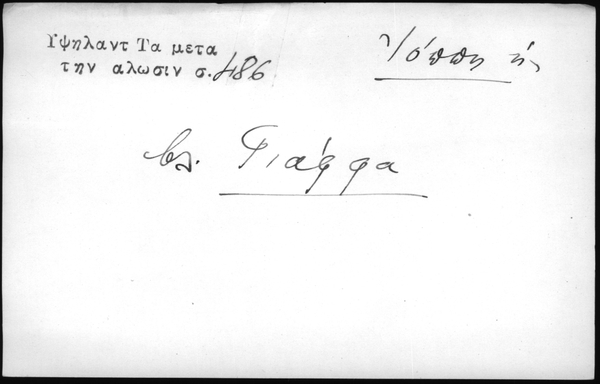 Υψηλαντ Τα μετα
την αλωσιν σ. 486
Ἰόππη ἡ
βλ. Γιάφφα